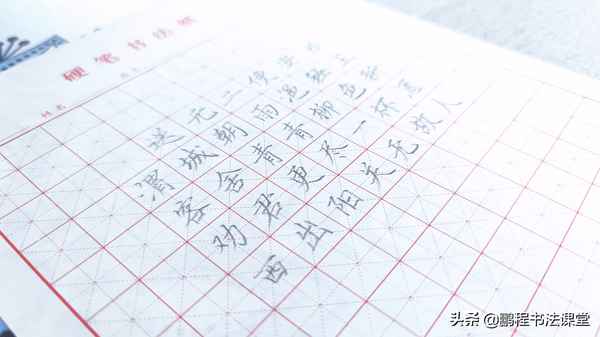 硬笔书法纸
姓名
送元二使安西
渭城朝雨浥轻尘
客舍青青柳色新
劝君更尽一杯酒
西出阳关无故人
头条 @鹏程书法课堂